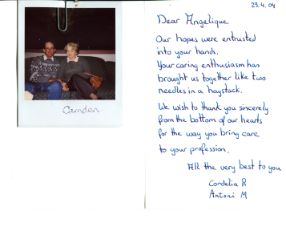 Camden
23.4.04
Dear Angelique
Our hopes were entrusted
into your hands.
Your caring enthusiasm has
brought us together like two
needles in a haystack.
We wish to thank you sincerely
from the bottom of our hearts
for the way you bring care
to your profession.
All the very best to you
Cordelia R
Antoni M